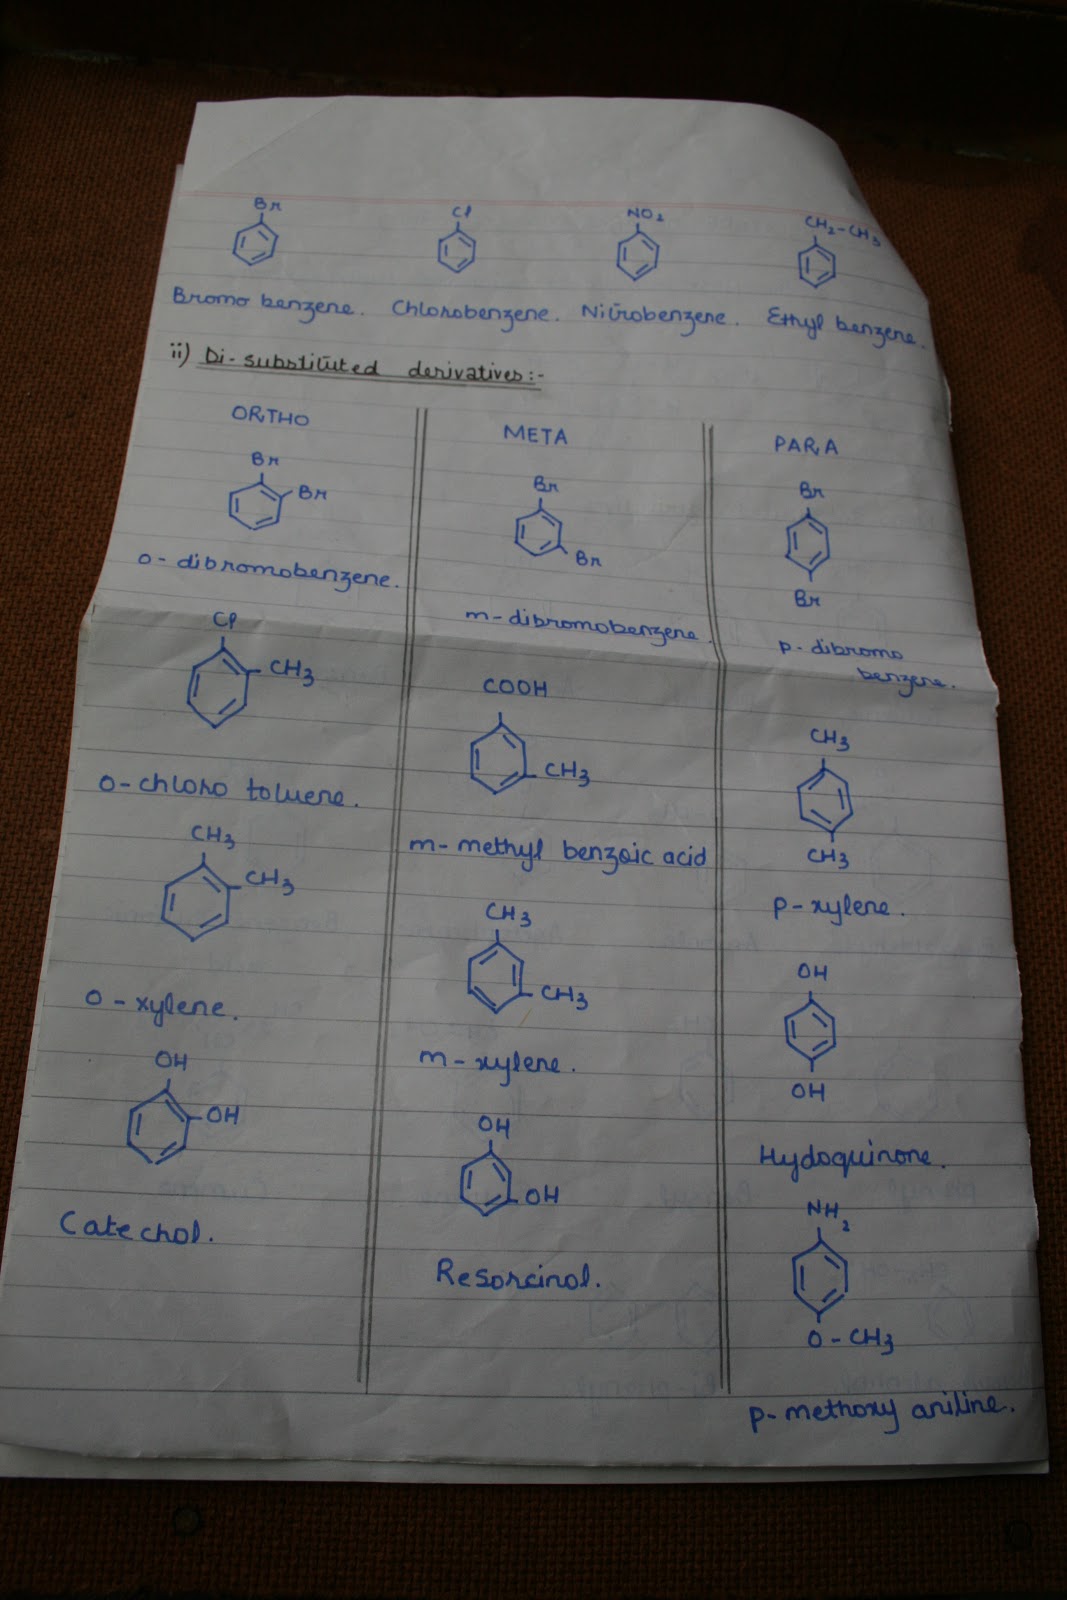 Br Cl NO2 CH2-CH3
Bromo benzene. Chlorobenzene. Nitrobenzene. Ethyl benzene.
ii) Di-substituted derivatives:-
ORTHO
Br
Br
o- dibromobenzene.
Cl
CH3
o-chloro toluene.
CH3
CH3
o-xylene.
OH
OH
Catechol.
META
Br
Br
m-dibromobenzene.
COOH
CH3
m-methyl benzoic acid
CH3
CH3
m-xylene.
OH
OH
Resorcinol.
PARA
Br
Br
p-dibromo
benzene.
CH3
CH3
p-xylene.
OH
OH
Hydoquinone.
NH2
O-CH3
p-methoxy aniline.